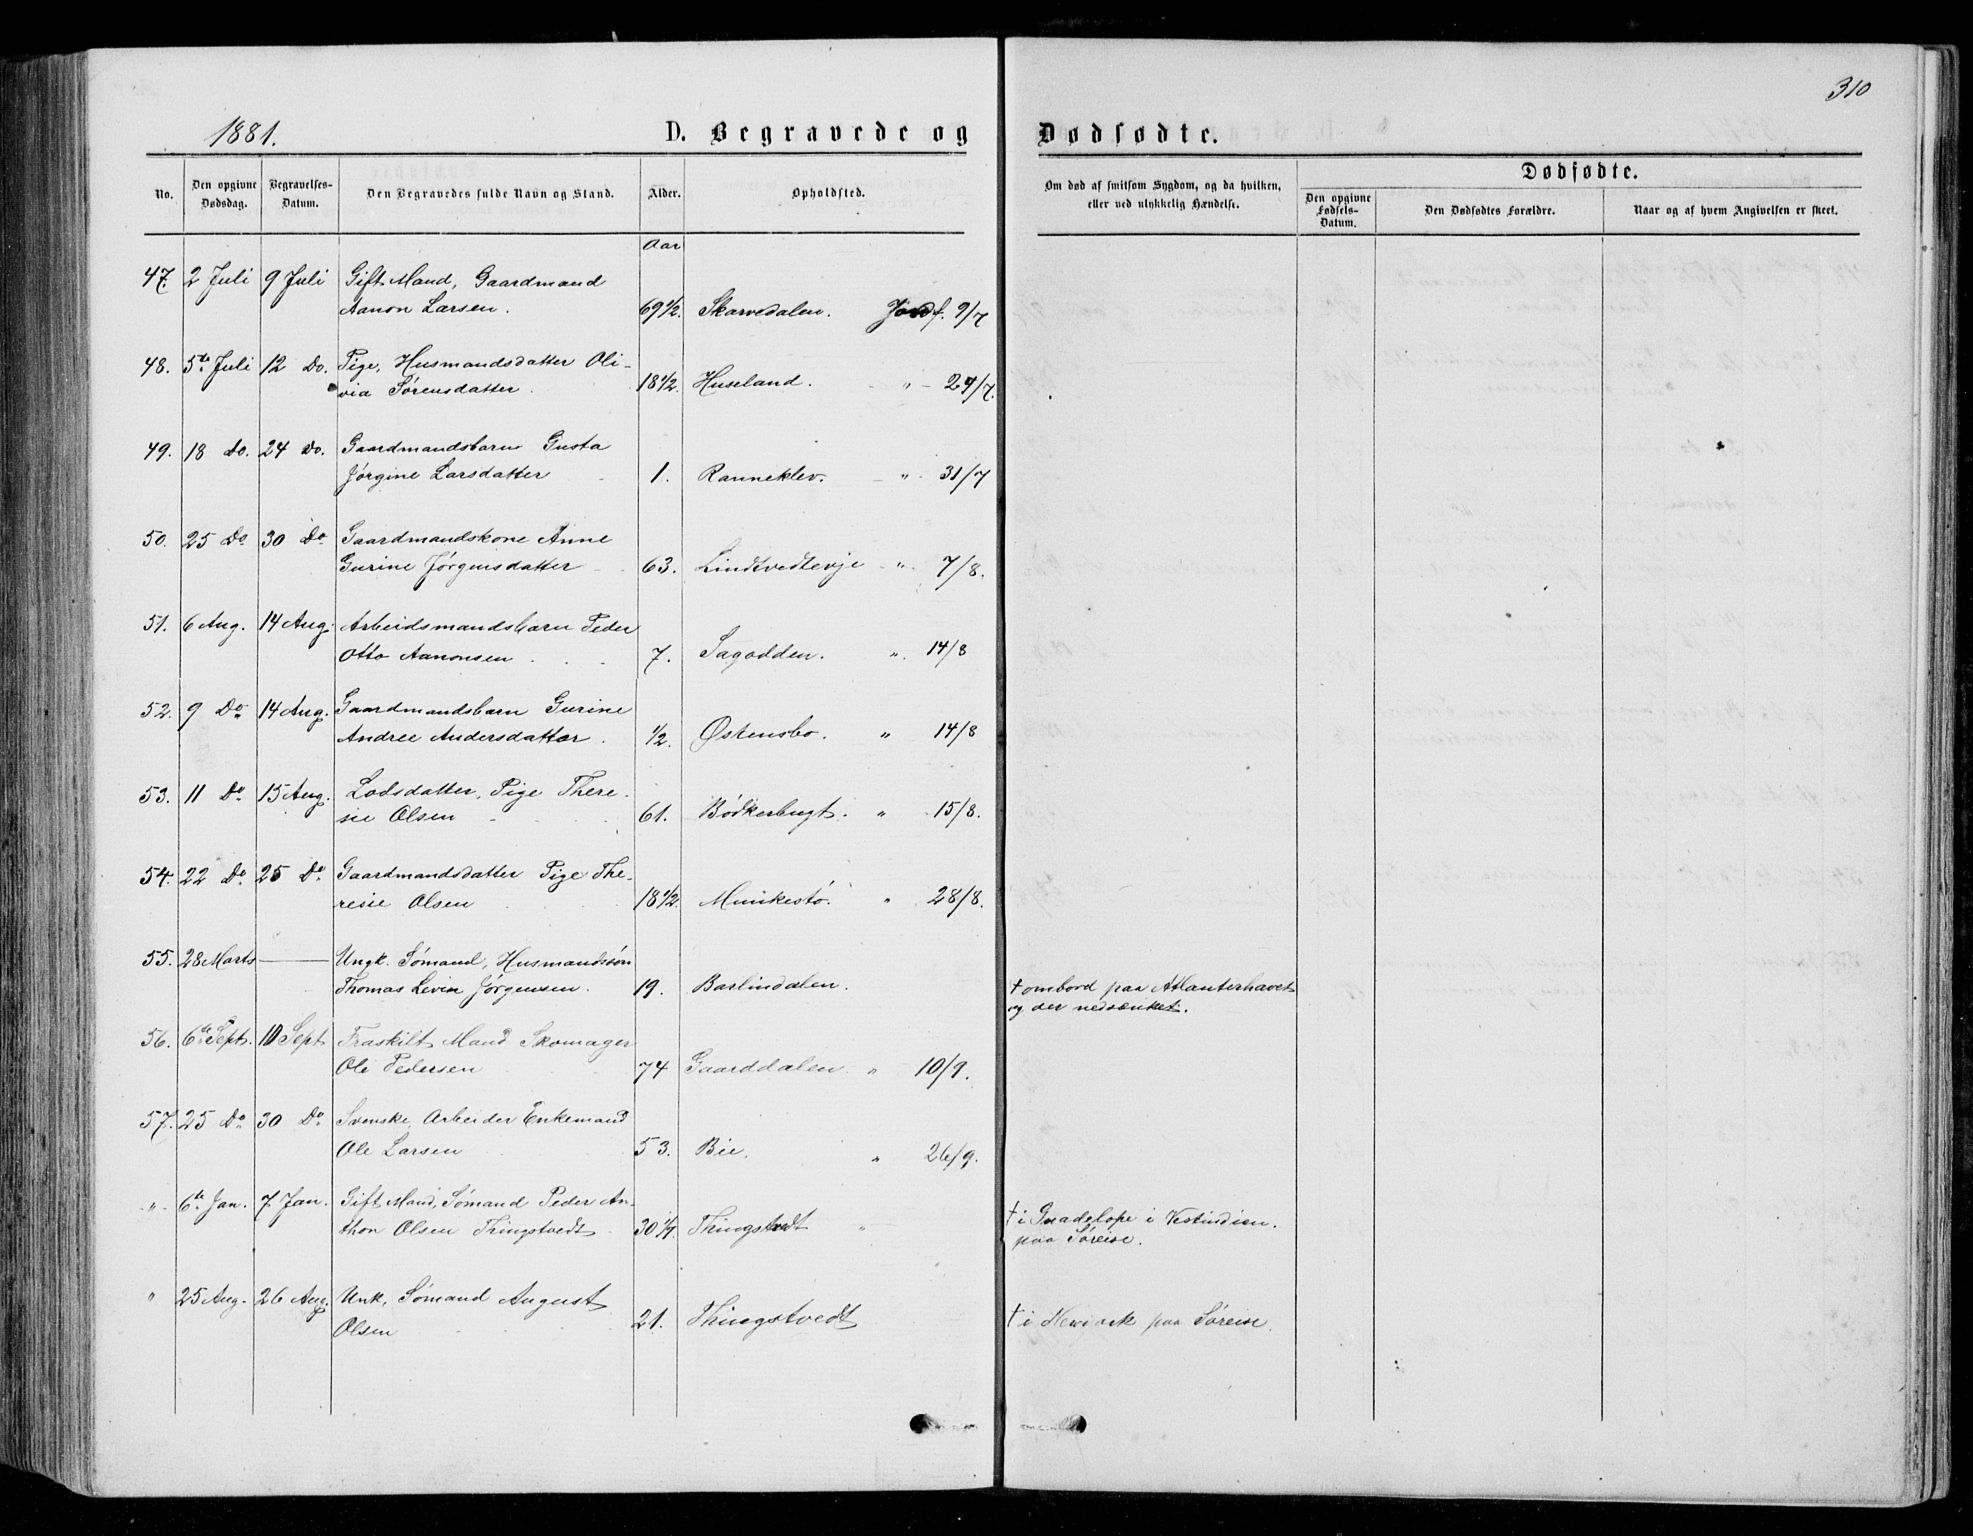 310
1881.
D. Begravede og Dødfødte.
No.
Den opgivne Dødsdag.
Begravelses-Datum.
Den Begravedes fulde Navn og Stand.
Alder.
Opholdsted.
Om død af smitsom Sygdom, og da hvilken, eller ved ulykkelig Hændelse.
Dødfødte.
Den opgivne Fødsels-Datum.
Den Dødfødtes Forældre.
Naar og af hvem Angivelsen er skeet.
Aar
47. 2 Juli 9 Juli Gift Mand, Gaardmand
Aanon Larsen. 69 1/2. Skarvedalen. Jordf. 9/7
48. 5te Juli 12 Do. Pige, Husmandsdatter Oli-
via Sørensdatter. 18 1/2. Huseland. " - 24/7.
49. 18 Do. 24 Do. Gaardmandsbarn Gusta
Jørgine Larsdatter 1. Ranneklev. - " - 31/7
50. 25 Do 30 Do Gaardmandskone Anne
Gurine Jørgensdatter 63. Lindtvedtevje - " - 7/8.
51. 6 Aug. 14 Aug. Arbeidsmandsbarn Peder
Otto Aanonsen 7. Sagodden. ". 14/8
52. 9 Do 14 Aug. Gaardmandsbarn Gurine
Andree Andersdatter. 1/2. Østensbo. " 14/8
53. 11 Do 15 Aug. Lodsdatter, Pige There-
sie Olsen 61. Bødkerbugt. " 15/8.
54. 22 Do 25 Do Gaardmandsdatter Pige The-
resie Olsen 18 1/2. Munkestø. " 28/8.
55. 28 Marts — Ungk. Sømand, Husmandssøn
Thomas Levin Jørgensen. 19. Barlindalen. † ombord paa Atlanterhavet
og der nedsænket.
56. 6te Sept. 10 Sept Fraskilt Mand Skomager
Ole Pedersen 74 Gaarddalen. " 10/9.
57. 25 Do 30 Do Svenske Arbeider Enkemand
Ole Larsen 53. Bie. " 26/9.
" 6te Jan. 7 Jan. Gift Mand, Sømand Peder An-
thon Olsen Thingstvedt 30 Thingstvedt " † i Guadelope i Vestindien.
paa Søreise.
" 25 Aug. 26 Aug. Unk, Sømand August
Olsen 21. Thingstvedt † i Newyork paa Søreise.